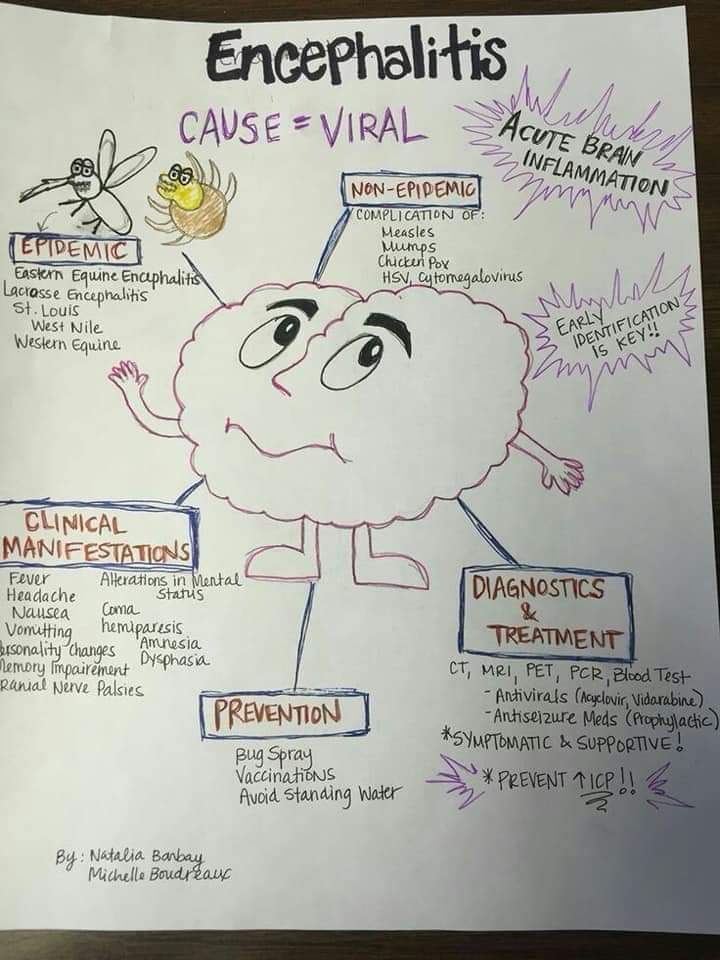 Encephalitis
CAUSE = VIRAL
ACUTE BRAIN
INFLAMMATION
EARLY
IDENTIFICATION
IS KEY!!
EPIDEMIC
Eastern Equine Encephalitis
Lacrosse Encephalitis
St. Louis
West Nile
Western Equine
NON-EPIDEMIC
COMPLICATION OF:
Measles
Mumps
Chicken Pox
HSV, Cytomegalovirus
CLINICAL
MANIFESTATIONS
Fever
Headache
Nausea
Vomitting
ersonality changes
Memory Impairement
ranial Nerve Palsies
Alterations in Mental
Status
Coma
hemiparesis
Amnesia
Dysphasia
PREVENTION
Bug Spray
Vaccinations
Avoid Standing Water
DIAGNOSTICS
&
TREATMENT
CT, MRI, PET, PCR, Blood Test
- Antivirals (Acyclovir, Vidarabine)
- Antiseizure Meds (Prophylactic)
*SYMPTOMATIC & SUPPORTIVE!
* PREVENT ↑ICP!!
By: Natalia Barbay
Michelle Boudreaux